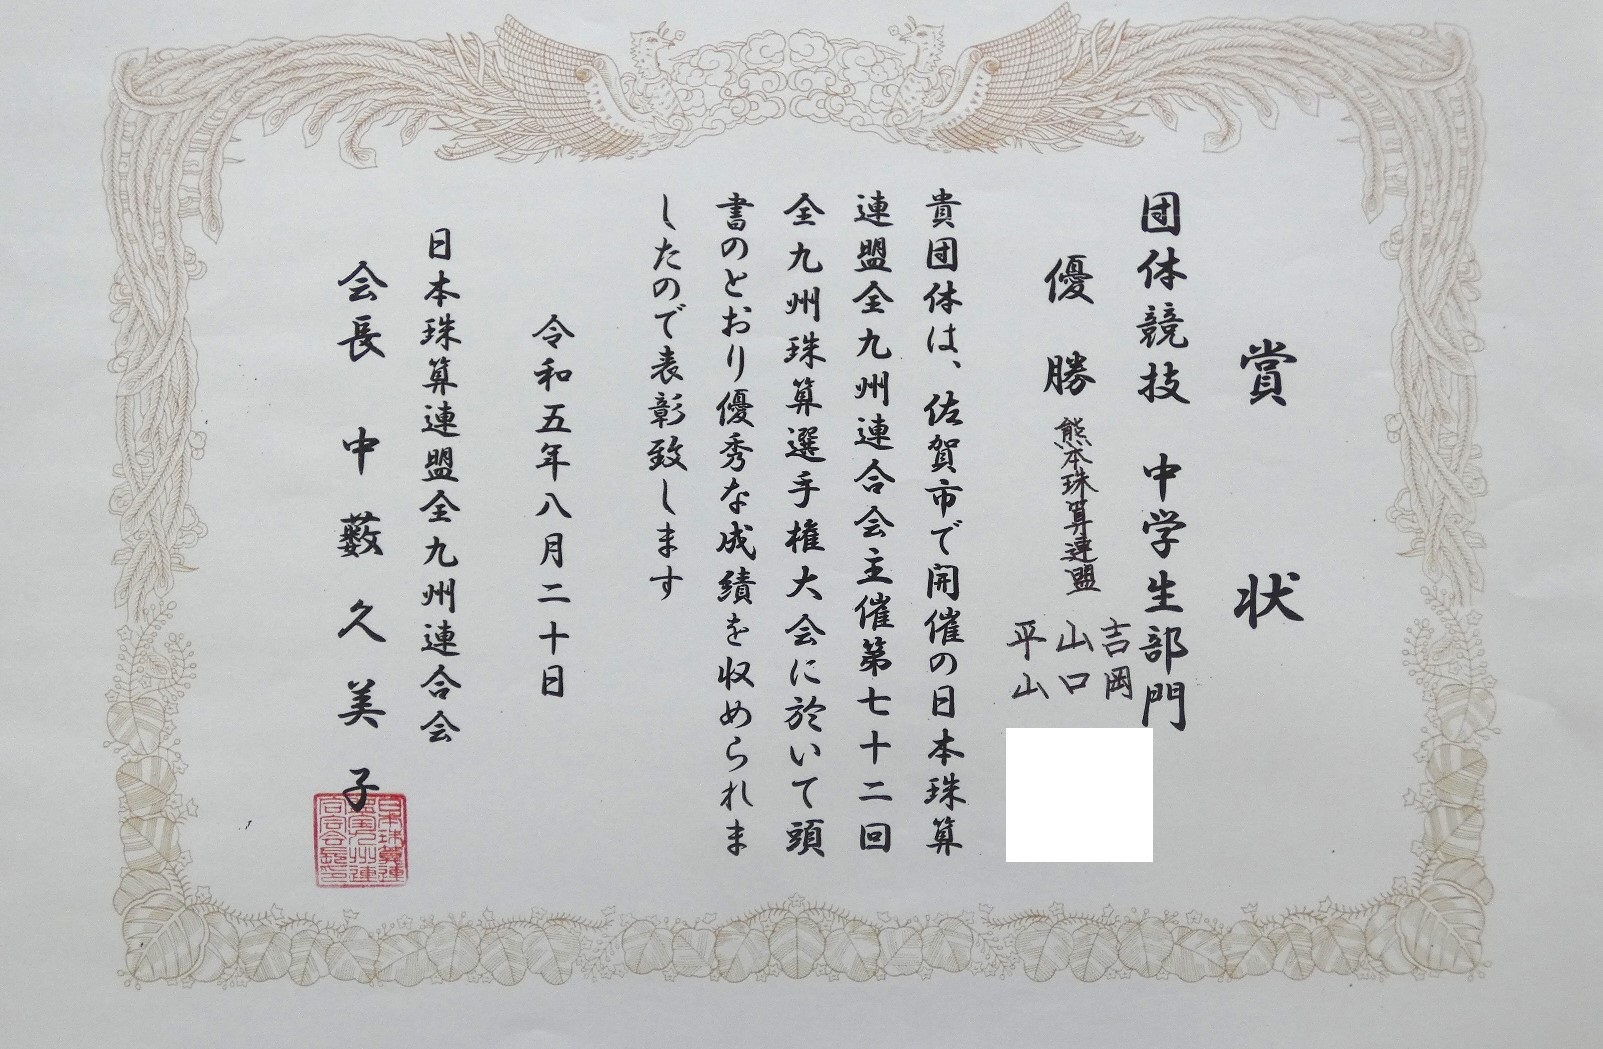 賞状
団体競技 中学生部門
優勝 熊本珠算連盟
吉岡
山口
平山
貴団体は、佐賀市で開催の日本珠算
連盟全九州連合会主催第七十二回
全九州珠算選手権大会に於いて頭
書のとおり優秀な成績を収められま
したので表彰致します
令和五年八月二十日
日本珠算連盟全九州連合会
会長 中藪久美子